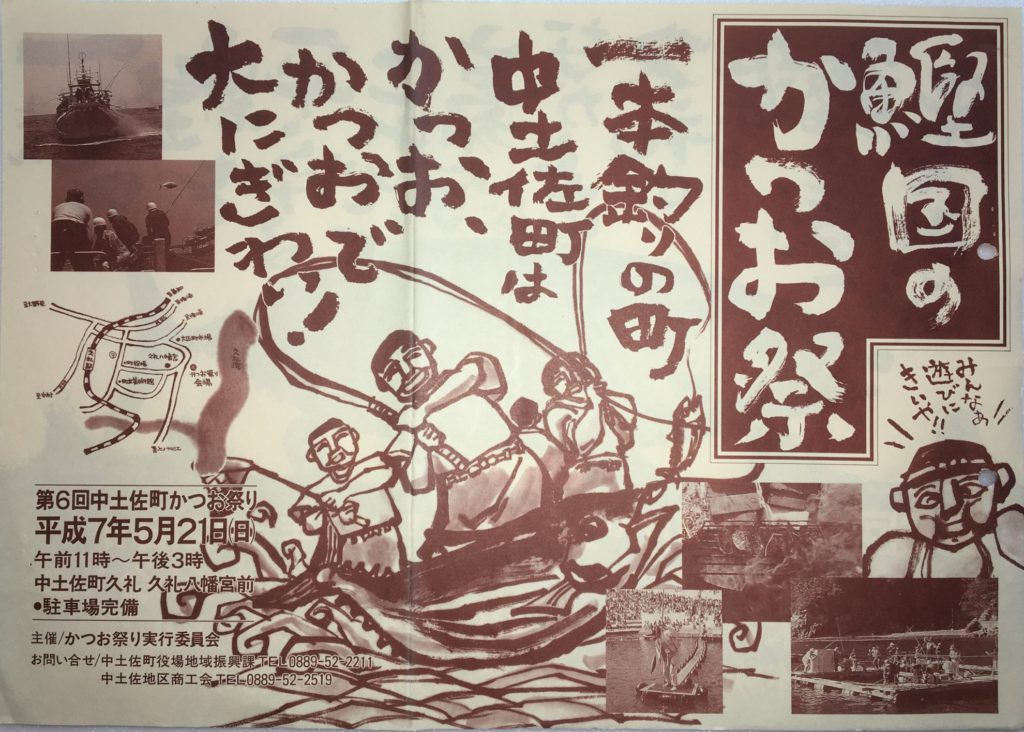 鰹国の
かつお祭
一本釣りの町
中土佐町は
かつお、
かつおで
大にぎわい!
みんなぁ
遊びに
きいや!!
久礼八幡宮
かつお祭り
会場
第6回中土佐町かつお祭り
平成7年5月21日(日)
午前11時〜午後3時
中土佐町久礼 久礼八幡宮前
●駐車場完備
主催/かつお祭り実行委員会
お問い合せ/中土佐町役場地域振興課 TEL0889-52-2211
中土佐地区商工会 TEL0889-52-2519